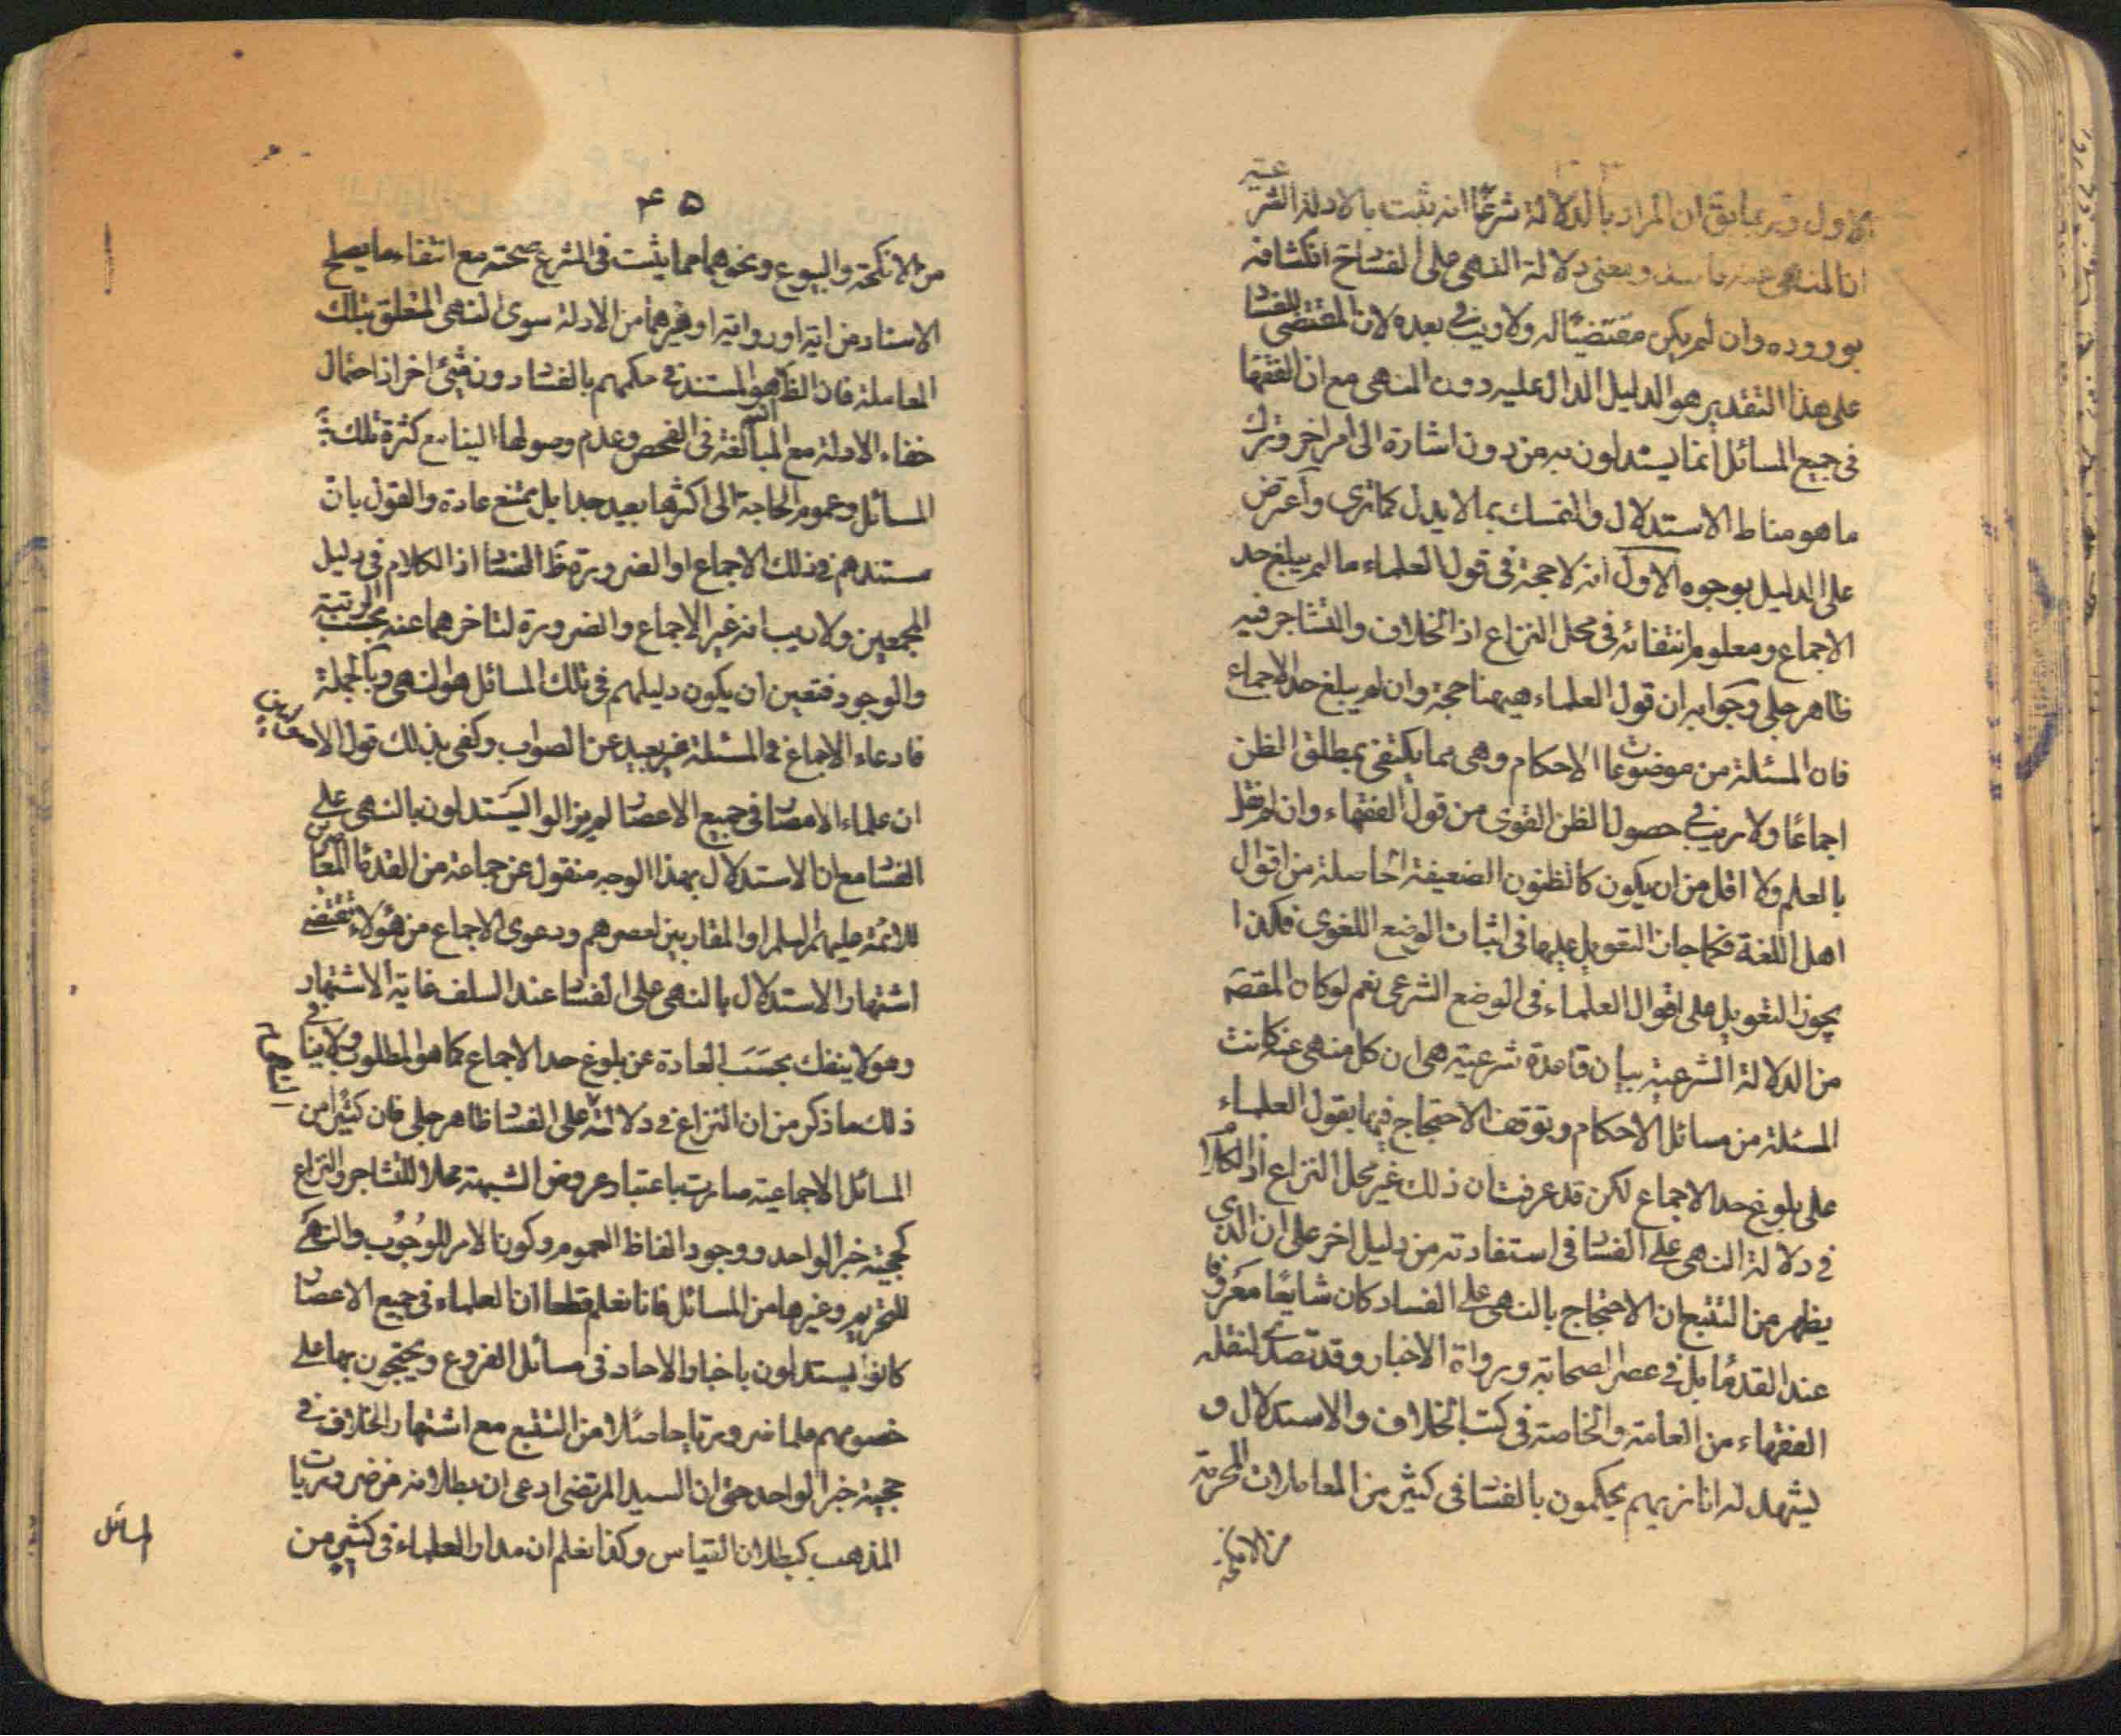 الاول وربما يق ان المراد بالدلالة شرعًا انه يثبت بالادلة الشرعية
ان المنهى عنه فاسد ومعنى دلالة النهى على الفساد ح انكشافه
بوروده وان لم يكن مقتضيًا له ولا ريب فى بعده لان المقتضى للفسا
على هذا التقدير هو الدليل الدال عليه دون النهى مع ان الفقها
فى جميع المسائل انما يستدلون به من دون اشارة الى امر اخر وترك
ما هو مناط الاستدلال والتمسك بما لا يدل كما ترى واعترض
على الدليل بوجوه الاول انه لا حجة فى قول العلماء ما لم يبلغ حد
الاجماع ومعلوم انتفائه فى محل النزاع اذ الخلاف والتشاجر فيه
ظاهر جلى وجوابه ان قول العلماء هيهنا حجة وان لم يبلغ حد الاجماع
فان المسئلة من موضوعات الاحكام وهى مما يكتفى بمطلق الظن
اجماعًا ولا ريب فى حصول الظن القوى من قول الفقهاء وان لم نقل
بالعلم ولا اقل من ان يكون كالظنون الضعيفة الحاصلة من اقوال
اهل اللغة فكما جاز التعويل عليها فى اثبات الوضع اللغوى فكذا
يجوز التعويل على اقوال العلماء فى الوضع الشرعى نعم لو كان المقصَ
من الدلالة الشرعية بيان قاعدة شرعية هى ان كل منهى عنه كانت
المسئلة من مسائل الاحكام ويتوقف الاحتجاج فيها بقول العلماء
على بلوغ حد الاجماع لكن قد عرفت ان ذلك غير محل النزاع اذ الكلام
فى دلالة النهى على الفسا فى استفادته من دليل اخر على ان الذى
يظهر من التتبع ان الاحتجاج بالنهى على الفساد كان شايعًا معروفا
عند القدمًا بل فى عصر الصحابة ورواة الاخبار وقد تصدى لنقله
الفقهاء من العامة والخاصة فى كتب الخلاف والاستدلال و
ليشهد له انا نريهم يحكمون بالفسا فى كثير من المعاملات المحرمة
من الانكحة
۴۵
من الانكحة والبيوع ونحوهما مما يثبت فى الشرع صحته مع انتفاء ما يصلح
الاسناد من اية او رواية او غيرهما من الادلة سوى النهى المتعلق بتلك
المعاملة فان الظ هو المستند فى حكمهم بالفسا دون شئ اخر اذ احتمال
خفاء الادلة مع المبالغة فى الفحص وعدم وصولها الينا مع كثرة تلك
المسائل وعموم الحاجة الى اكثرها بعيد جدا بل ممتنع عادة والقول بان
مستندهم فى ذلك الاجماع او الضرورة ظ الفسا اذ الكلام فى دليل
المجمعين ولا ريب انه غير الاجماع والضرورة لتاخرهما عنه بحسب الرتبة
والوجود فتعين ان يكون دليلهم فى تلك المسائل هو النهى وبالجملة
فادعاء الاجماع فى المسئلة غير بعيد عن الصواب وكفى بذلك قول
ان علماء الامصا فى جميع الاعصا لم يزالوا ليستدلون بالنهى على
الفسا مع ان الاستدلال بهذا الوجه منقول عن جماعة من القدما المعاصرين
للائمة عليهم السلم او المقاربين لعصرهم ودعوى الاجماع من هؤلاء تقتضى
اشتهار الاستدلال بالنهى على الفسا عند السلف غاية الاشتهار
وهو لا ينفك بحسَب العادة عن بلوغ حد الاجماع كما هو المطلوب ولا ينافى
ذلك ما ذكر من ان النزاع فى دلالته على الفسا ظاهر جلى فان كثيرا من
المسائل الاجماعية صارت باعتبار عروض الشبهة محلا للتشاجر والنزاع
كحجية خبر الواحد ووجود الفاظ العموم وكون الامر للوجُوب والنهى
للتحريم وغيرها من المسائل فانا نعلم قطعا ان العلماء فى جميع الاعصا
كانوا يستدلون باخبار الاحاد فى مسائل الفروع ويحتجون بها على
خصومهم علما ضروريا حاصلا من التتبع مع اشتهار الخلاف فى
حجية خبر الواحد حتى ان السيد المرتضى ادعى ان بطلانه من ضروريات
المذهب كبطلان القياس وكذا نعلم ان مدار العلماء فى كثير من
المسائل